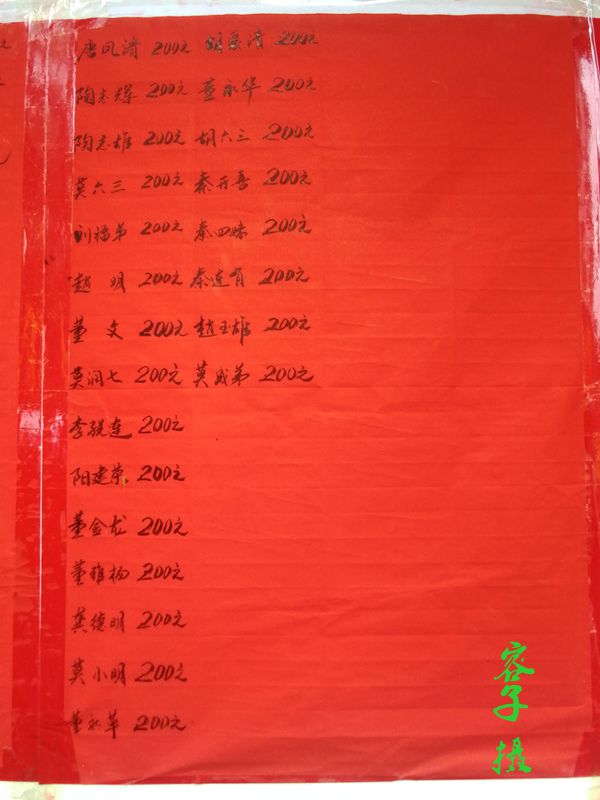 唐凤清 200元 胡慶清 200元
陶志辉 200元 董永华 200元
陶志雄 200元 胡六三 200元
莫六三 200元 秦卉喜 200元
刘福弟 200元 秦四妹 200元
赵明 200元 秦连有 200元
董文 200元 赵玉雄 200元
莫润七 200元 莫成弟 200元
李税连 200元
阳建荣 200元
董金龙 200元
董雅杨 200元
龚德明 200元
莫小明 200元
董永革 200元
容子摄